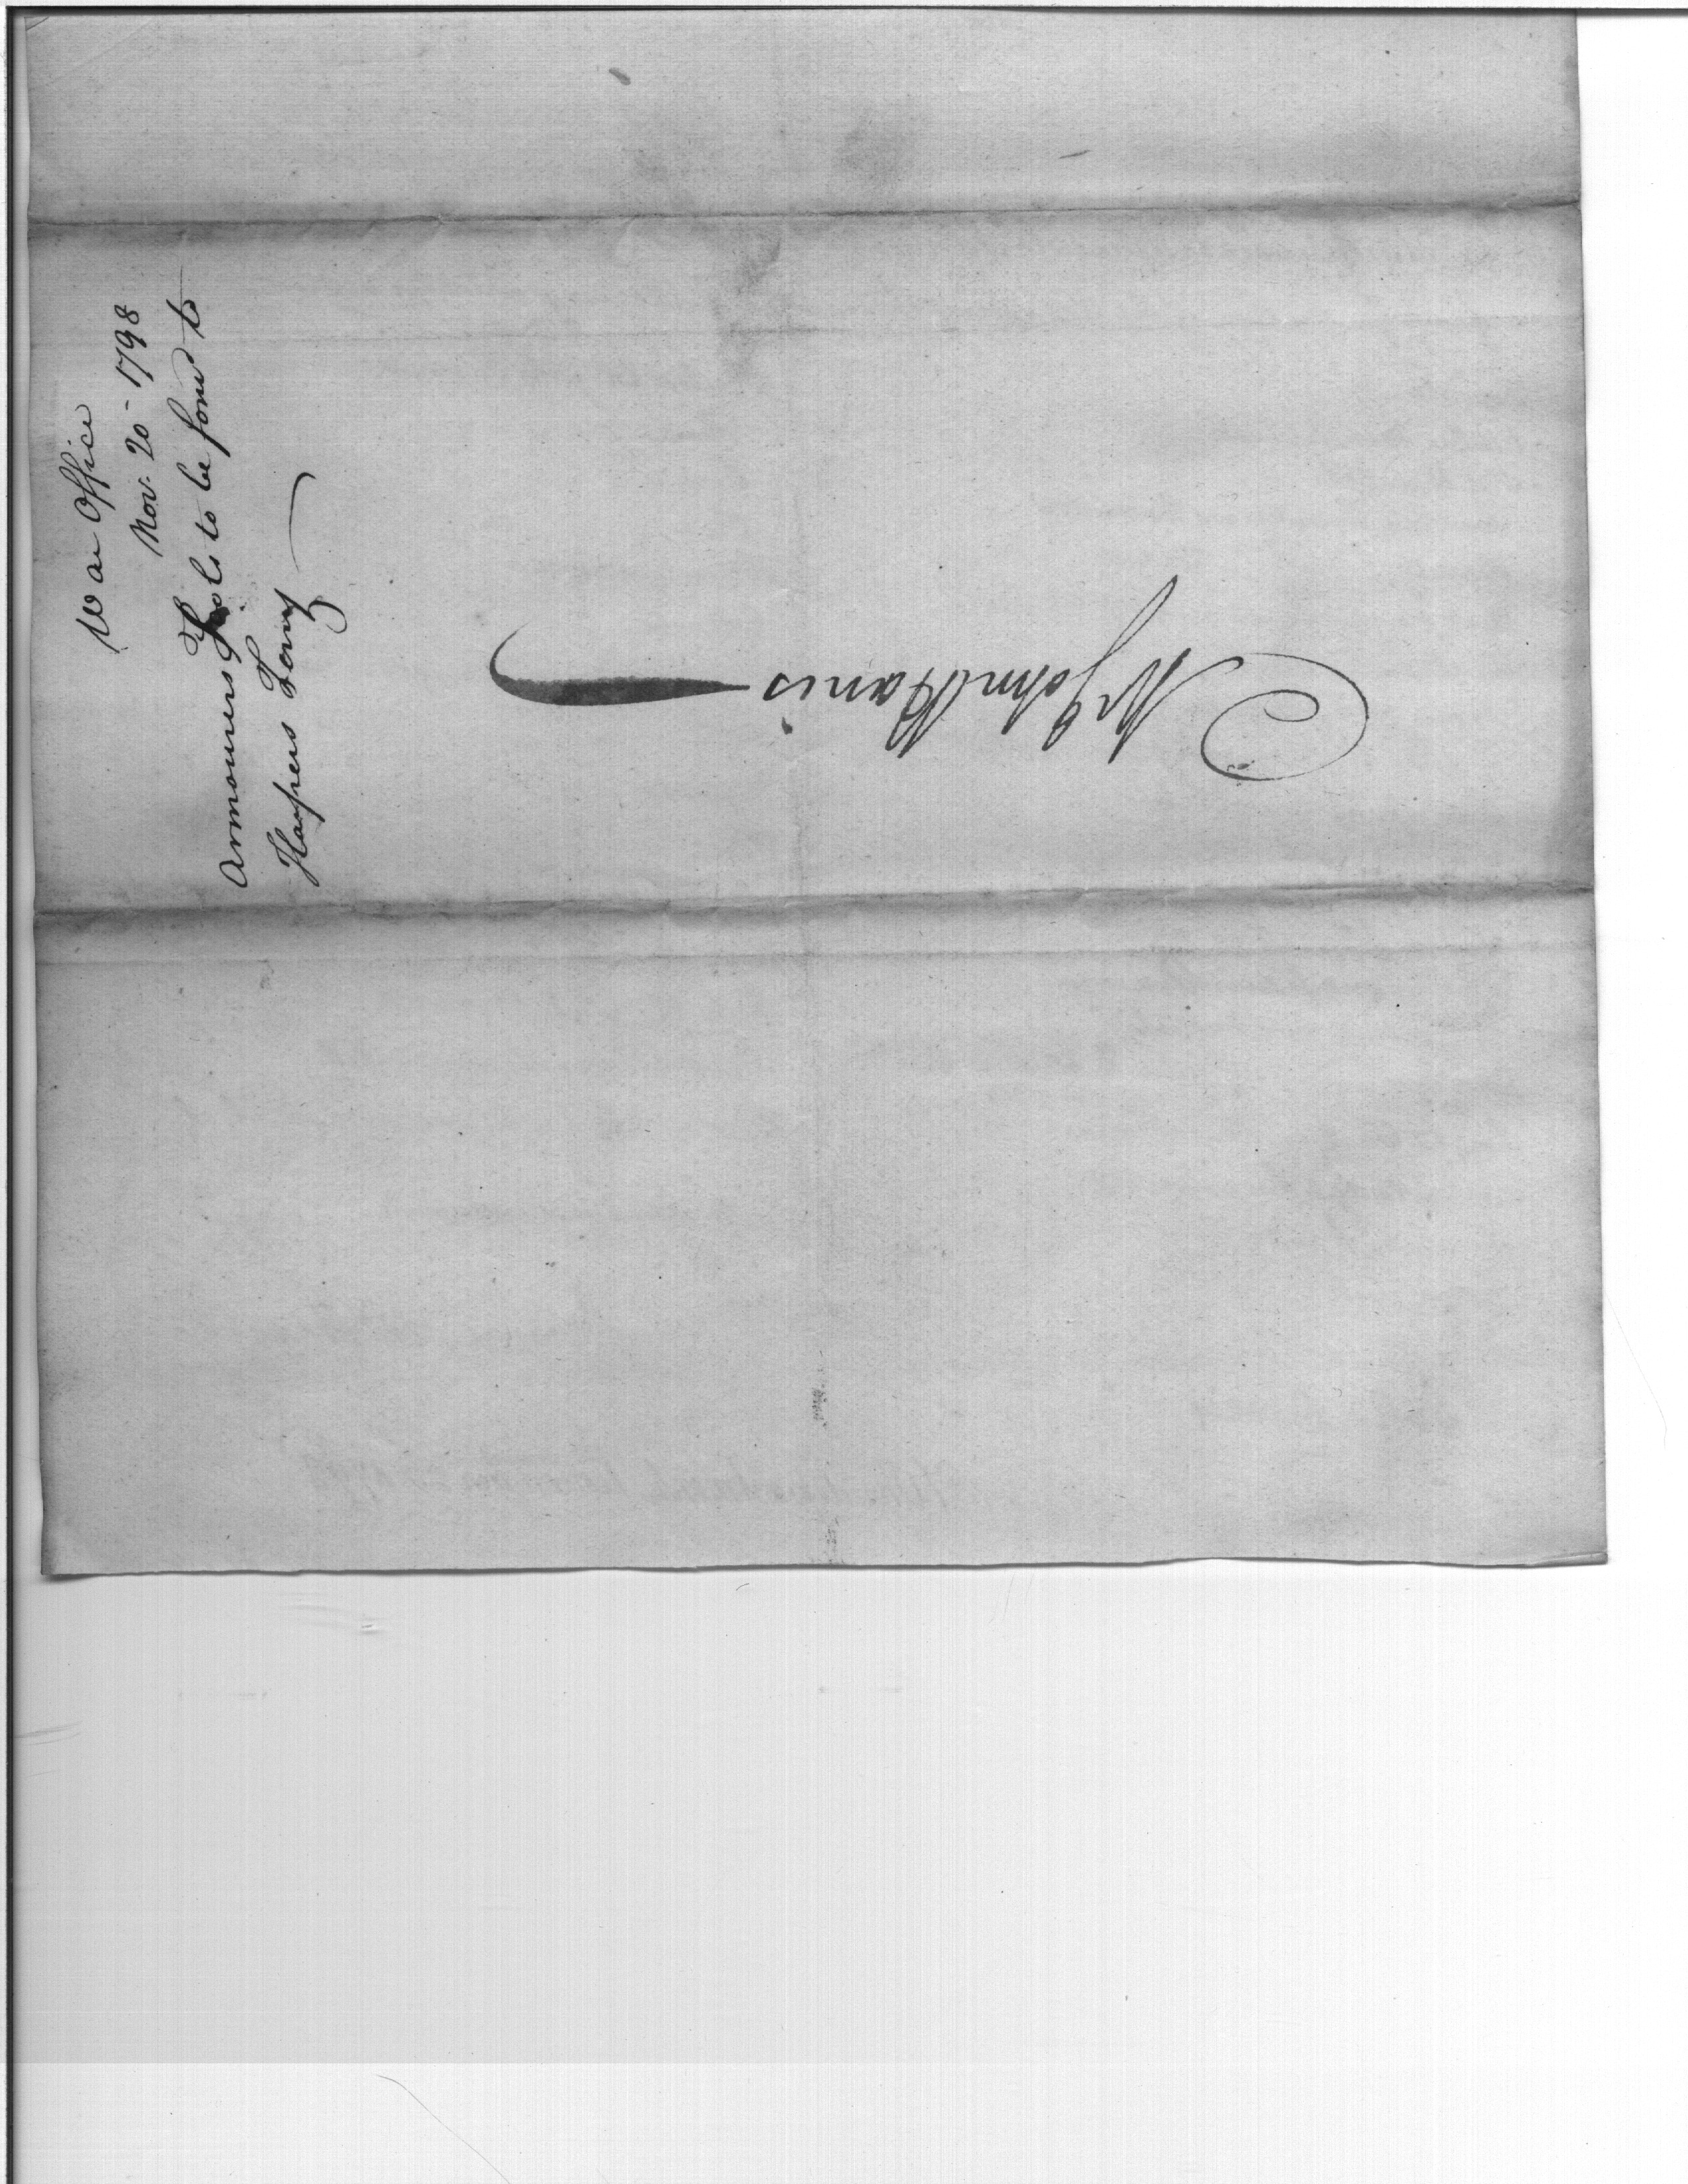 War Office
Nov. 20 - 1798
Armourers Tools to be forwd to
Harpers Ferry
Mr John Harris